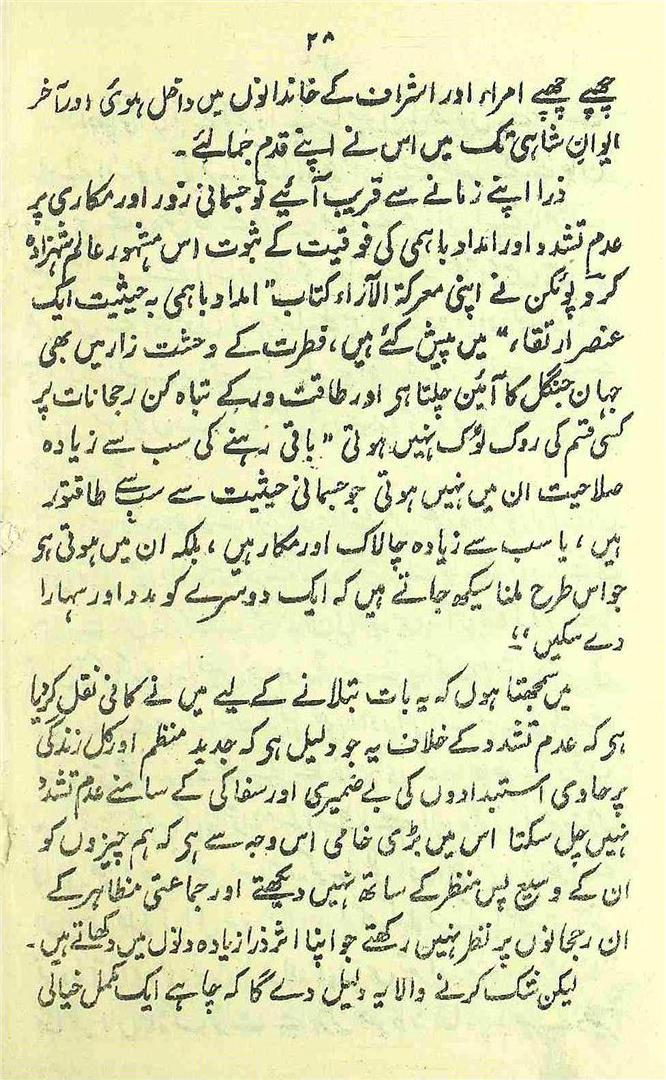 ۲۸
چھپے چھپے امراء اور اشراف کے خاندانوں میں داخل ہوئی اور آخر
ایوانِ شاہی تک میں اس نے اپنے قدم جمالئے۔
ذرا اپنے زمانے سے قریب آئیے تو جسمانی زور اور مکاری پر
عدم تشدد اور امداد باہمی کی فوقیت کے ثبوت اس مشہور عالم شہزادہ
کروپوٹکن نے اپنی معرکۃ الآراء کتاب "امداد باہمی بہ حیثیت ایک
عنصر ارتقاء" میں پیش کئے ہیں، فطرت کے وحشت زار میں بھی
جہاں جنگل کا آئین چلتا ہی اور طاقت ور کے تباہ کن رجحانات پر
کسی قسم کی روک ٹوک نہیں ہوتی "باقی رہنے کی سب سے زیادہ
صلاحیت ان میں نہیں ہوتی جو جسمانی حیثیت سے سب سے طاقتور
ہیں، یا سب سے زیادہ چالاک اور مکار ہیں، بلکہ ان میں ہوتی ہی
جو اس طرح ملنا سیکھ جاتے ہیں کہ ایک دوسرے کو مدد اور سہارا
دے سکیں"۔
میں سمجھتا ہوں کہ یہ بات بتلانے کے لیے میں نے کافی نقل کردیا
ہی کہ عدم تشدد کے خلاف یہ جو دلیل ہی کہ جدید منظم اور کل زندگی
پر حاوی استبدادوں کی بے ضمیری اور سفاکی کے سامنے عدم تشدد
نہیں چل سکتا اس میں بڑی خامی اس وجہ سے ہی کہ ہم چیزوں کو
ان کے وسیع پس منظر کے ساتھ نہیں دیکھتے اور جماعتی مظاہر کے
ان رجحانوں پر نظر نہیں رکھتے جو اپنا اثر ذرا زیادہ دنوں میں دکھاتے ہیں۔
لیکن شک کرنے والا یہ دلیل دے گا کہ چاہے ایک مکمل خیالی